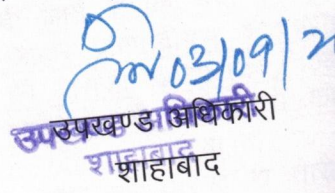 03/09/2
उपखण्ड अधिकारी
शाहाबाद
उपखण्ड अधिकारी
शाहाबाद